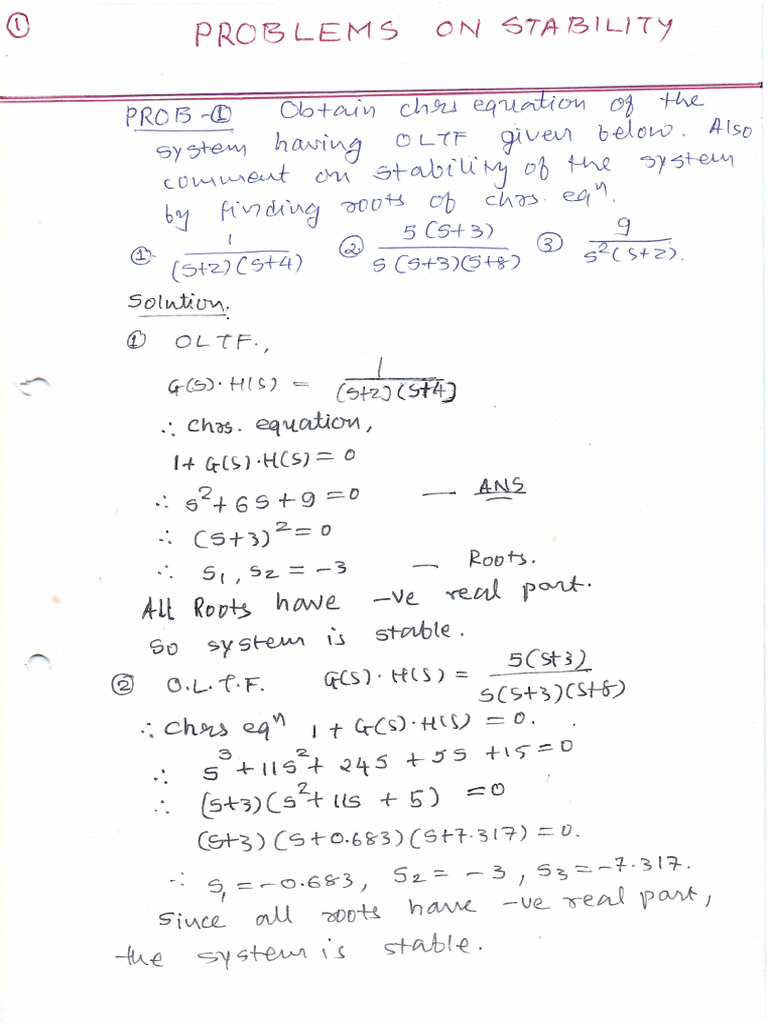 ①
PROBLEMS ON STABILITY
PROB-① Obtain chrs equation of the
system having OLTF given below. Also
comment on stability of the system
by finding roots of chrs. eqⁿ.
① 1/(s+2)(s+4) ② 5(s+3)/s(s+3)(s+8) ③ 9/s²(s+2).
Solution.
① OLTF.,
G(s)·H(s) = 1/(s+2)(s+4)
∴ Chrs. equation,
1+G(s)·H(s)=0
∴ s²+6s+9=0 — ANS
∴ (s+3)²=0
∴ s₁, s₂ = -3 — Roots.
All Roots have -ve real part.
So system is stable.
② O.L.T.F. G(s)·H(s) = 5(s+3)/s(s+3)(s+8)
∴ Chrs eqⁿ 1+G(s)·H(s)=0.
∴ s³+11s²+24s+5s+15=0
∴ (s+3)(s²+11s+5)=0
(s+3)(s+0.683)(s+7.317)=0.
∴ s₁=-0.683, s₂=-3, s₃=-7.317.
Since all roots have -ve real part,
the system is stable.